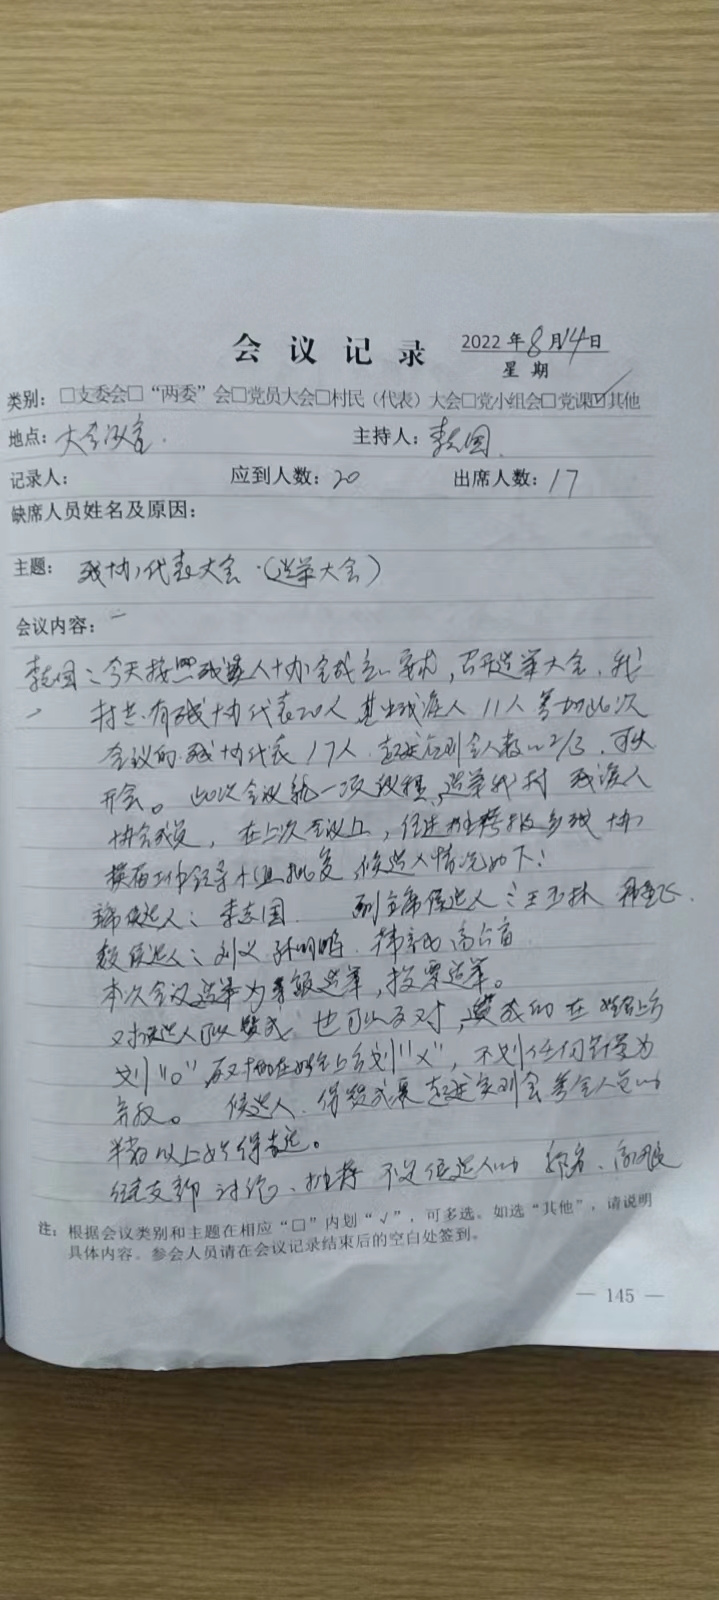 会议记录 2022年8月14日
星期
类别：□支委会□“两委”会□党员大会□村民（代表）大会□党小组会□党课☑其他
地点：大会议室. 主持人：李志国.
记录人： 应到人数：20 出席人数：17
缺席人员姓名及原因：
主题：残协代表大会.（选举大会）
会议内容：
李志国：今天按照残疾人协会成立的要求，召开选举大会.我
村共有残协代表20人 其中残疾人11人 参加此次
会议的残协代表17人.超过应到会人数的2/3.可以
开会。此次会议就一项议程，选举我村 残疾人
协会成员，在上次会议上，经过推荐报乡残协
换届工作领导小组批复，候选人情况如下：
主席候选人：李志国 副主席候选人：王玉林
委员候选人：刘义 孙明明.
本次会议选举为等额选举，投票选举。
对候选人可以赞成 也可以反对，赞成的在姓名上方
划“O”反对的在姓名上方划“X”，不划任何符号为
弃权。候选人.得赞成票超过实到会参会人员的
半数以上始得当选。
经支部讨论、推荐
注：根据会议类别和主题在相应“□”内划“√”，可多选。如选“其他”，请说明
具体内容。参会人员请在会议记录结束后的空白处签到。
— 145 —